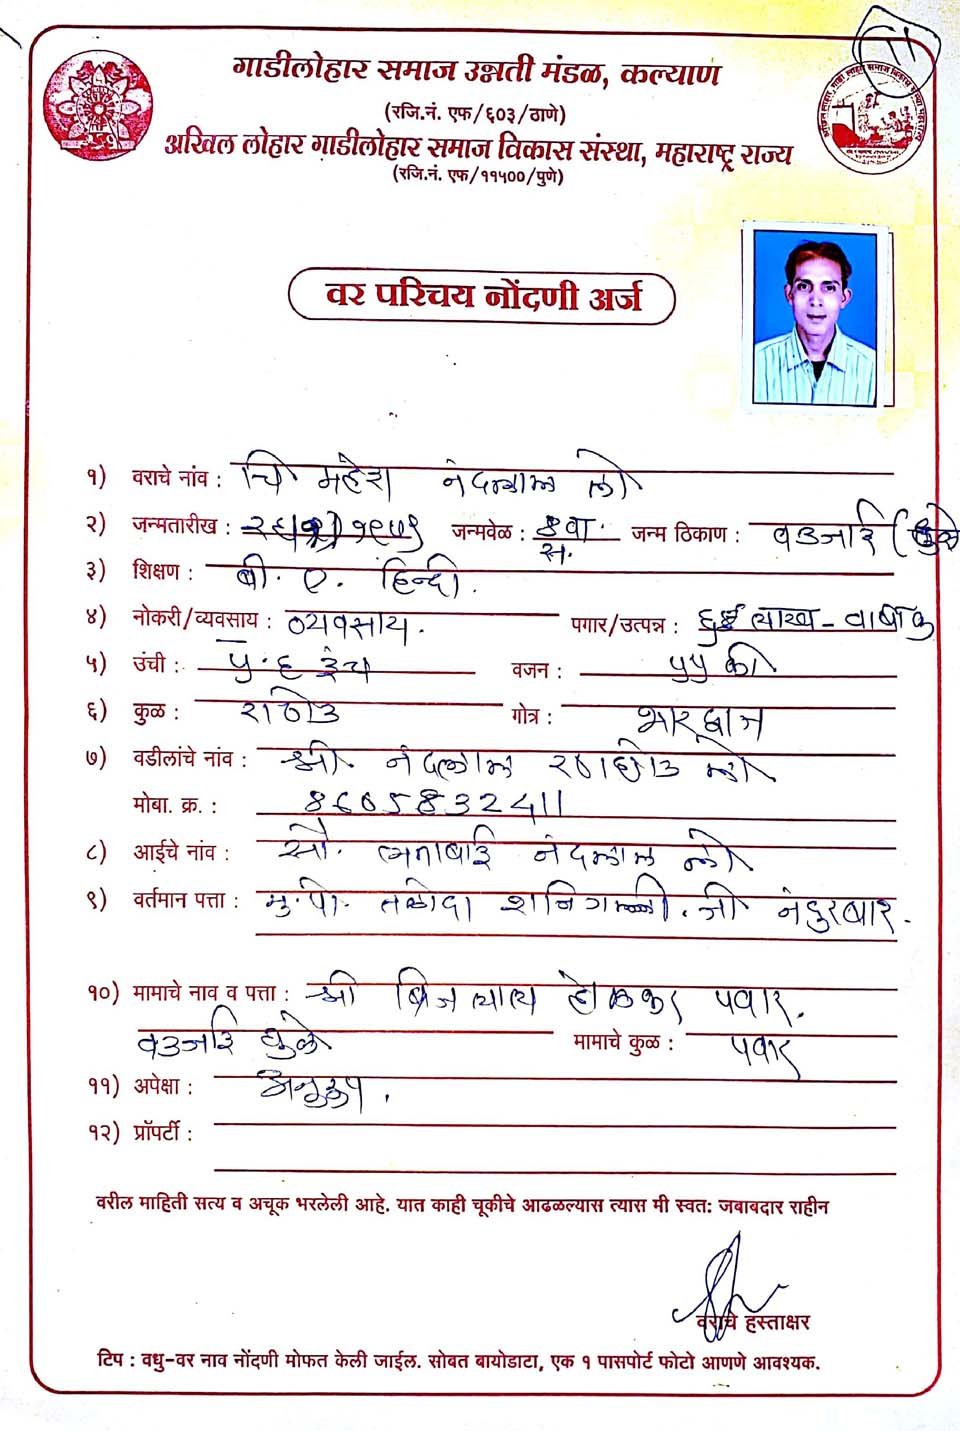 गाडीलोहार समाज उन्नती मंडळ, कल्याण
(रजि.नं. एफ/६०३/ठाणे)
अखिल लोहार गाडीलोहार समाज विकास संस्था, महाराष्ट्र राज्य
(रजि.नं. एफ/११५००/पुणे)
वर परिचय नोंदणी अर्ज
१) वराचे नांव : चि महेश नंदलाल लो
२) जन्मतारीख : जन्मवेळ : ४ वा. स. जन्म ठिकाण : वडजाई (धुळे
३) शिक्षण : बी. ए. हिन्दी.
४) नोकरी/व्यवसाय : व्यवसाय. पगार/उत्पन्न : दुई लाख - वार्षीक
५) उंची : ५.६ इंच वजन : ५५ की
६) कुळ : राठोड गोत्र : भारद्वाज
७) वडीलांचे नांव : श्री. नंदलाल रणछोड लो
मोबा. क्र. : 8605832411
८) आईचे नांव : सौ. लताबाई नंदलाल लो
९) वर्तमान पत्ता : मु.पो. तळोदा शनिगल्ली. जी नंदुरबार.
१०) मामाचे नाव व पत्ता : श्री ब्रिजलाल पवार.
वडजाई धुळे मामाचे कुळ : पवार
११) अपेक्षा : अनुरूप.
१२) प्रॉपर्टी :
वरील माहिती सत्य व अचूक भरलेली आहे. यात काही चूकीचे आढळल्यास त्यास मी स्वतः जबाबदार राहीन
वराचे हस्ताक्षर
टिप : वधु-वर नाव नोंदणी मोफत केली जाईल. सोबत बायोडाटा, एक १ पासपोर्ट फोटो आणणे आवश्यक.